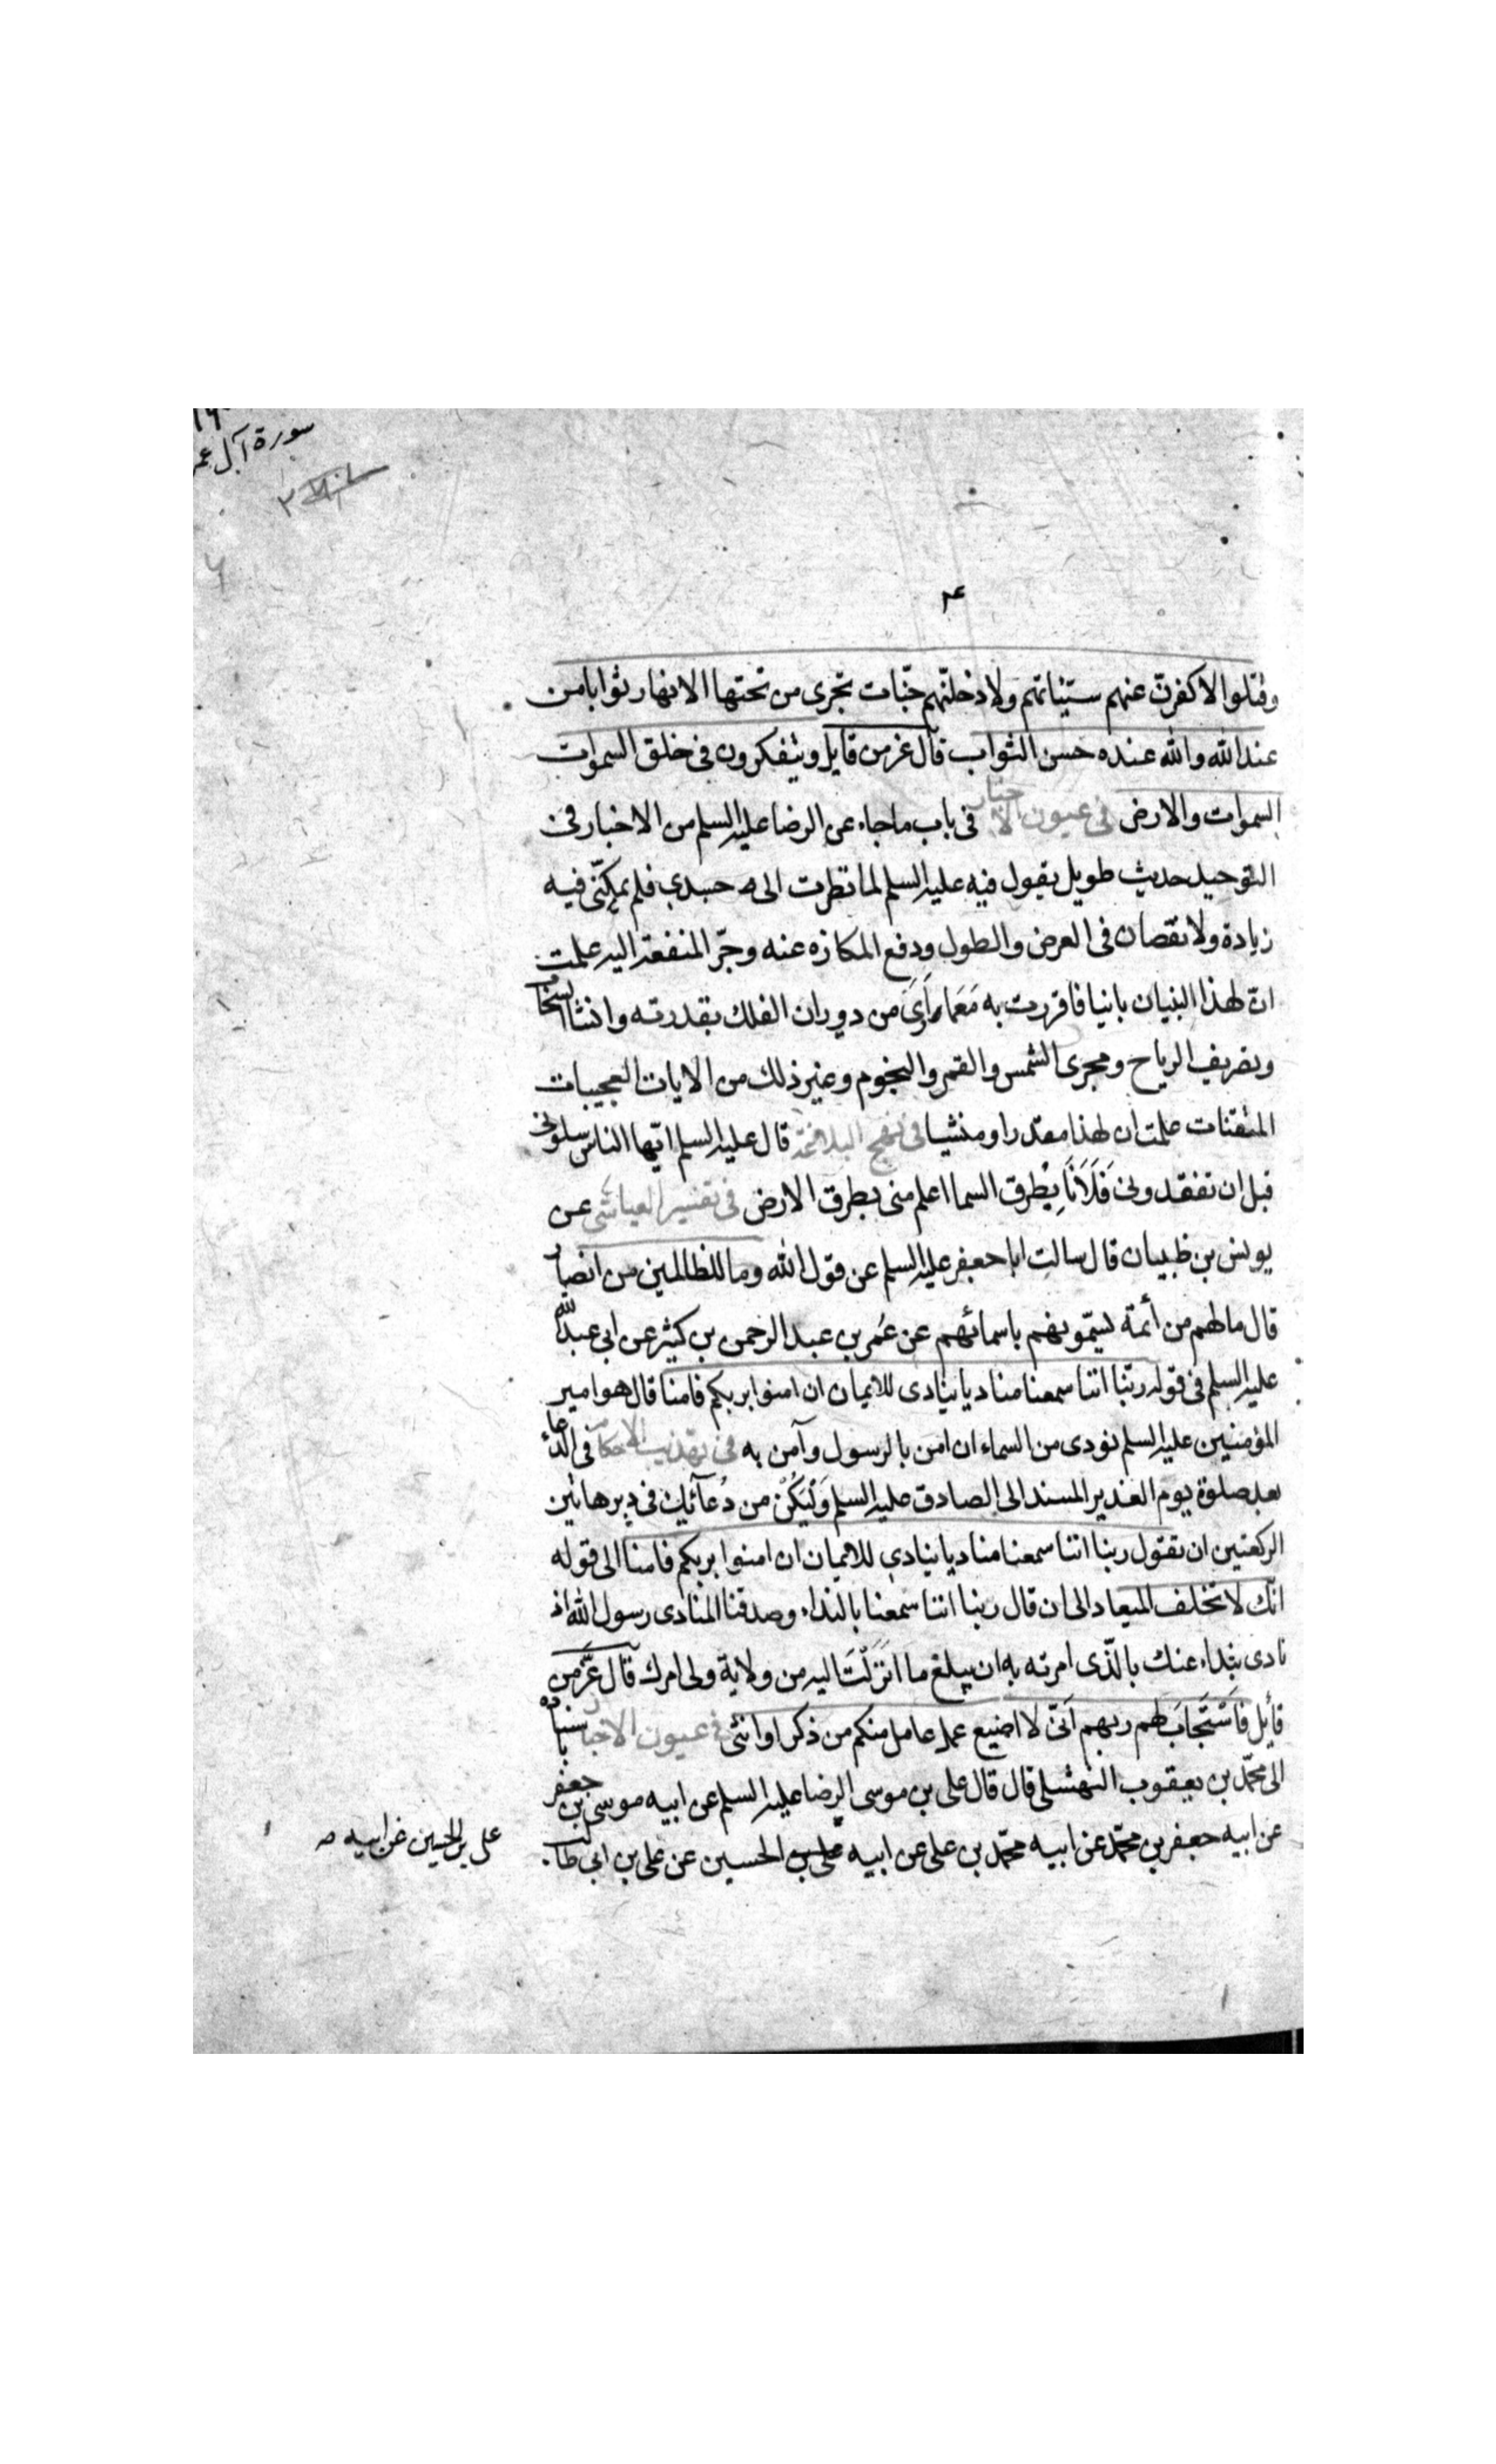 سورة آل عمر
وقتلوا لاكفرنّ عنهم سيّئاتهم ولادخلنّهم جنّات تجرى من تحتها الانهار ثوابا من
عند الله والله عنده حسن الثواب قال عز من قايل ويتفكرون فى خلق السموات
السموات والارض فى عيون الاخبار فى باب ماجاء عن الرضا عليه السلم من الاخبار فى
التوحيد حديث طويل يقول فيه عليه السلم لما نظرت الى جسدى فلم يمكنّى فيه
زيادة ولا نقصان فى العرض والطول ودفع المكازه عنه وجرّ المنفعة اليه علمت
انّ لهذا البنيان بانيا فاقررت به مَعَ ما اَرَىَ من دوران الفلك بقدرته وانشا السحاب
وتصريف الرياح ومجرى الشمس والقمر والنجوم وغير ذلك من الايات العجيبات
المتقنات علمت ان لهذا مقدرا ومنشيا فى نهج البلاغة قال عليه السلم ايّها الناس سلونى
قبل ان تفقدونى فَلَاَنَا بِطُرق السما اعلم منى بطرق الارض فى تفسير العياشى عن
يونس بن ظبيان قال سالت ابا جعفر عليه السلم عن قول الله وما للظالمين من انصار
قال مالهم من أئمة يسمّونهم باسمائهم عن عُمر بن عبد الرحمن بن كثير عن ابى عبد الله
عليه السلم فى قوله ربّنا اننا سمعنا مناديا ينادى للايمان ان امنوا بربكم فامنا قال هو امير
المؤمنين عليه السلم نودى من السماء ان امن بالرسول وآمن به فى تهذيب الاحكام فى الدّعاء
بعد صلوة يوم الغدير المسند الى الصادق عليه السلم وَلْيَكُنْ من دُعآئك فى دبر هاتين
الركعتين ان تقول ربنا اننا سمعنا مناديا ينادى للايمان ان امنوا بربكم فامنا الى قوله
انّك لا تخلف الميعاد الى ان قال ربنا اننا سمعنا بالنداء وصدقنا المنادى رسول الله اذ
نادى بنداء عنك بالّذى امرته به ان يبلغ ما انزَلْتَ اليه من ولاية ولى امرك قال عزّ من
قائل فَاسْتَجابَ لهم ربهم اَنّى لا اضيع عمل عامل منكم من ذكر او انثى فى عيون الاخبار باسناده
الى محمّد بن يعقوب النهشلى قال قال على بن موسى الرضا عليه السلم عن ابيه موسى بن جعفر
عن ابيه جعفر بن محمّد عن ابيه محمّد بن على عن ابيه على بن الحسين عن على بن ابى طالب
على بن الحسين عن ابيه